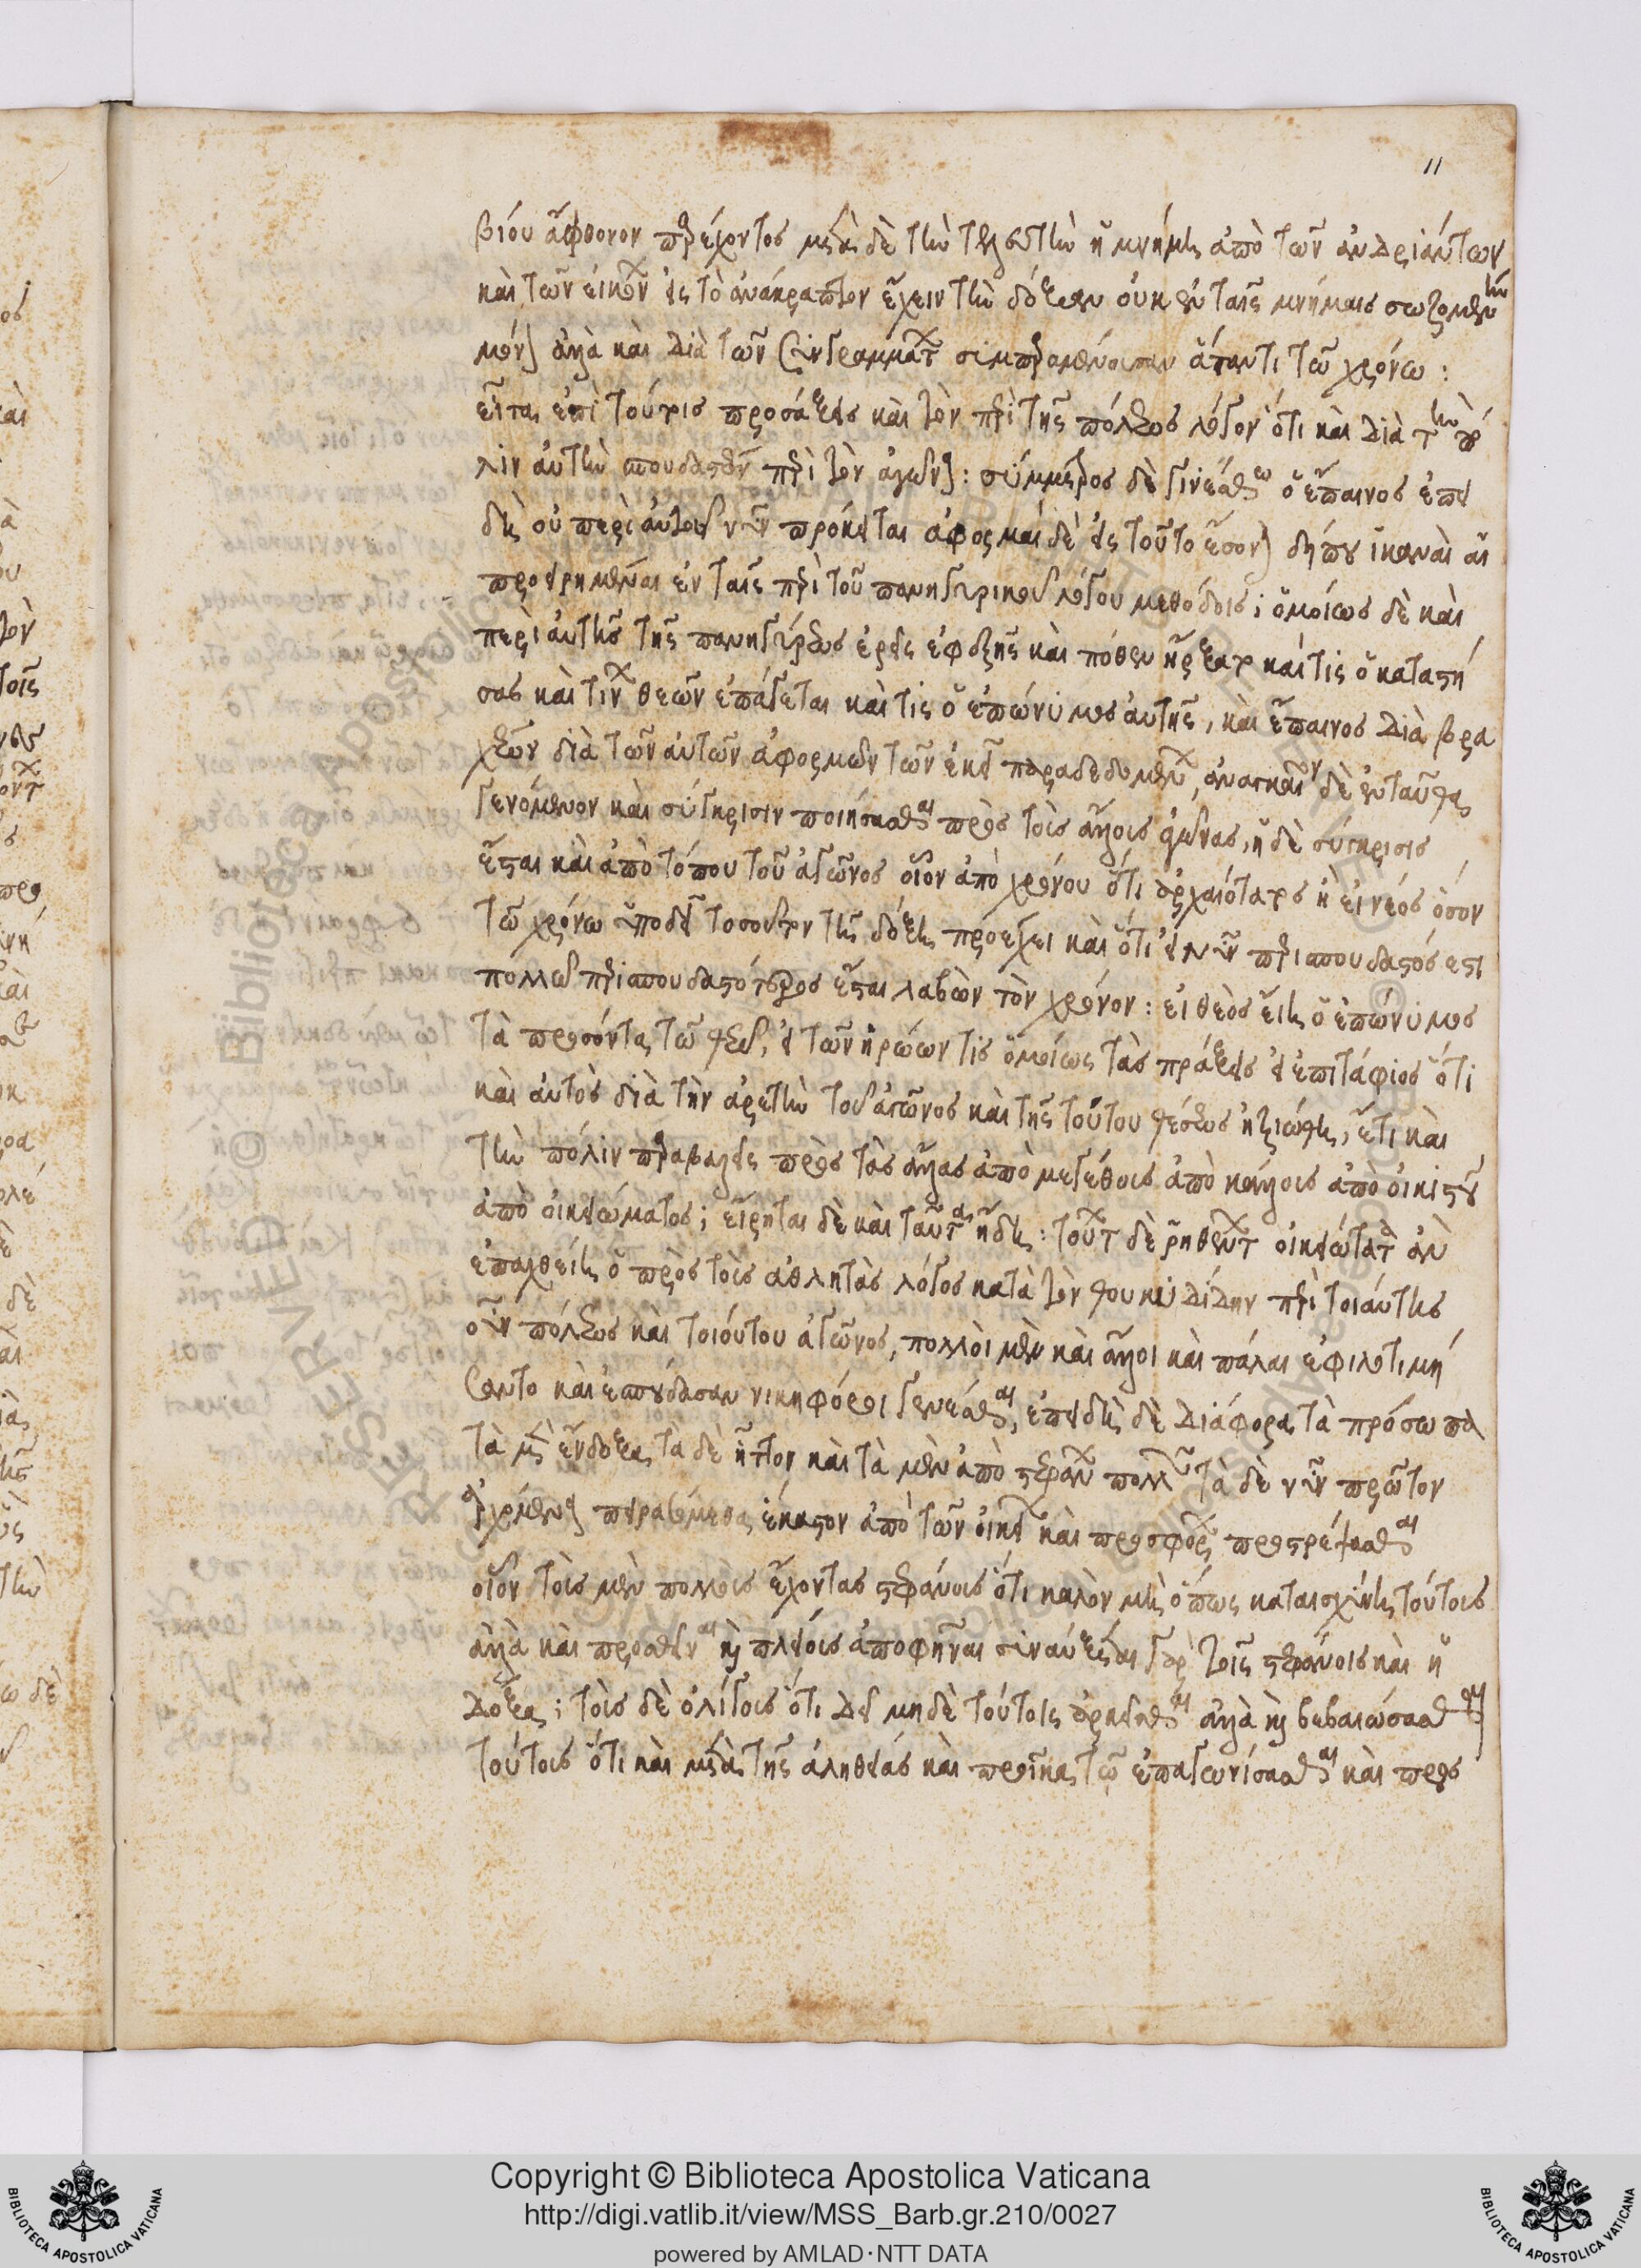 11
βίου ἄφθονον παρέχοντος μετὰ δὲ τὴν τελευτὴν ἡ μνήμη ἀπὸ τῶν ἀνδριάντων
καὶ τῶν εἰκόνων εἰς τὸ ἔχειν τὴν δόξαν οὐκ ἐν ταῖς μνήμαις σωζομένην
μόνον ἀλλὰ καὶ διὰ τῶν συνγραμμάτων συμπαραμένουσαν ἅπαντι τῶ χρόνω :
εἶτα ἐπὶ τούτοις προσάξεις καὶ τὸν περὶ τῆς πόλεως λόγον ὅτι καὶ διὰ τὴν πό
λιν αὐτὴν σπουδαστέον περὶ τὸν ἀγῶνα : σύμμετρος δὲ γινέσθω ὁ ἔπαινος ἐπει
δὴ οὐ περὶ αὐτοῦ νῦν πρόκειται ἀφορμαὶ δὲ εἰς τοῦτο ἔσονται δήπου ἱκαναὶ αἱ
προειρημέναι ἐν ταῖς περὶ τοῦ πανηγυρικοῦ λόγου μεθόδοις ; ὁμοίως δὲ καὶ
περὶ αὐτῆς τῆς πανηγύρεως ἐρεῖς ἐφεξῆς καὶ πόθεν ἤρξατο καί τις ὁ καταστή
σας καὶ τίνων θεῶν ἐπάγεται καὶ τίς ὁ ἐπώνυμος αὐτῆς, καὶ ἔπαινος διὰ βρα
χέων διὰ τῶν αὐτῶν ἀφορμῶν τῶν ἐκεῖ παραδεδομένων, ἀναγκαῖον δὲ ἐνταῦθα
γενόμενον καὶ σύγκρισιν ποιήσασθαι πρὸς τοὺς ἄλλους ἀγῶνας, ἡ δὲ σύγκρισις
ἔσται καὶ ἀπὸ τόπου τοῦ ἀγῶνος οἷον ἀπὸ χρόνου ὅτι ἀρχαιότατος ἢ εἰ νέος ὅσον
τῶ χρόνω ὑποδεῖ τοσοῦτον τῆς δόξης προέχει καὶ ὅτι εἰ νῦν περισπουδαστός ἐστι
πολλῶ περισπουδαστότερος ἔσται λαβὼν τὸν χρόνον : εἰ θεὸς εἴη ὁ ἐπώνυμος
τὰ προσόντα τῶ θεῶ, εἰ τῶν ἡρώων τις ὁμοίως τὰς πράξεις εἰ ἐπιτάφιος ὅτι
καὶ αὐτὸς διὰ τὴν ἀρετὴν τοῦ ἀγῶνος καὶ τῆς τούτου θέσεως ἠξιώθη, ἔτι καὶ
τὴν πόλιν παραβαλεῖς πρὸς τὰς ἄλλας ἀπὸ μεγέθους ἀπὸ κάλλους ἀπὸ οἰκιστοῦ
ἀπὸ οἰκειώματος ; εἴρηται δὲ καὶ ταῦτα ἤδη : τούτων δὲ ῥηθέντων οἰκειότατα ἂν
ἐπαχθείη ὁ πρὸς τοὺς ἀθλητὰς λόγος κατὰ τὸν θουκυδίδην περὶ τοιαύτης
οὖν πόλεως καὶ τοιούτου ἀγῶνος, πολλοὶ μὲν καὶ ἄλλοι καὶ πάλαι ἐφιλοτιμή
σαντο καὶ ἐσπούδασαν νικηφόροι γενέσθαι, ἐπειδὴ δὲ διάφορα τὰ πρόσωπα
τὰ μὲν ἔνδοξα τὰ δὲ ἧττον καὶ τὰ μὲν ἀπὸ στεφάνων πολλῶν τὰ δὲ νῦν πρῶτον
ἀρχόμενα πειρασόμεθα ἕκαστον ἀπὸ τῶν οἰκείων καὶ προσφόρων προτρέψασθαι
οἷον τοὺς μὲν πολλοὺς ἔχοντας στεφάνους ὅτι καλὸν μὴ ὅπως καταισχύνη τούτους
ἀλλὰ καὶ προσθεῖναι καὶ πλείους ἀποφῆναι συναύξεται γὰρ τοῖς στεφάνοις καὶ ἡ
δόξα ; τοὺς δὲ ὀλίγους ὅτι δεῖ μηδὲ τούτοις ἀρκεῖσθαι ἀλλὰ καὶ βεβαιώσασθαι
τούτους ὅτι καὶ μετὰ τῆς ἀληθείας καὶ προῖκα τῶ ἐπαγωνίσασθαι καὶ πρὸς
Copyright © Biblioteca Apostolica Vaticana
http://digi.vatlib.it/view/MSS_Barb.gr.210/0027
powered by AMLAD·NTT DATA
BIBLIOTECA APOSTOLICA VATICANA
BIBLIOTECA APOSTOLICA VATICANA